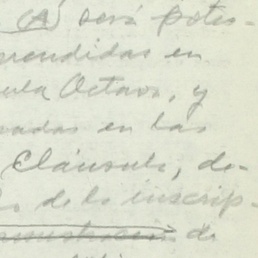 (A) será potes-
prendidas en
ula Octava, y
nadas en las
Cláusula, de-
de la inscrip-
de